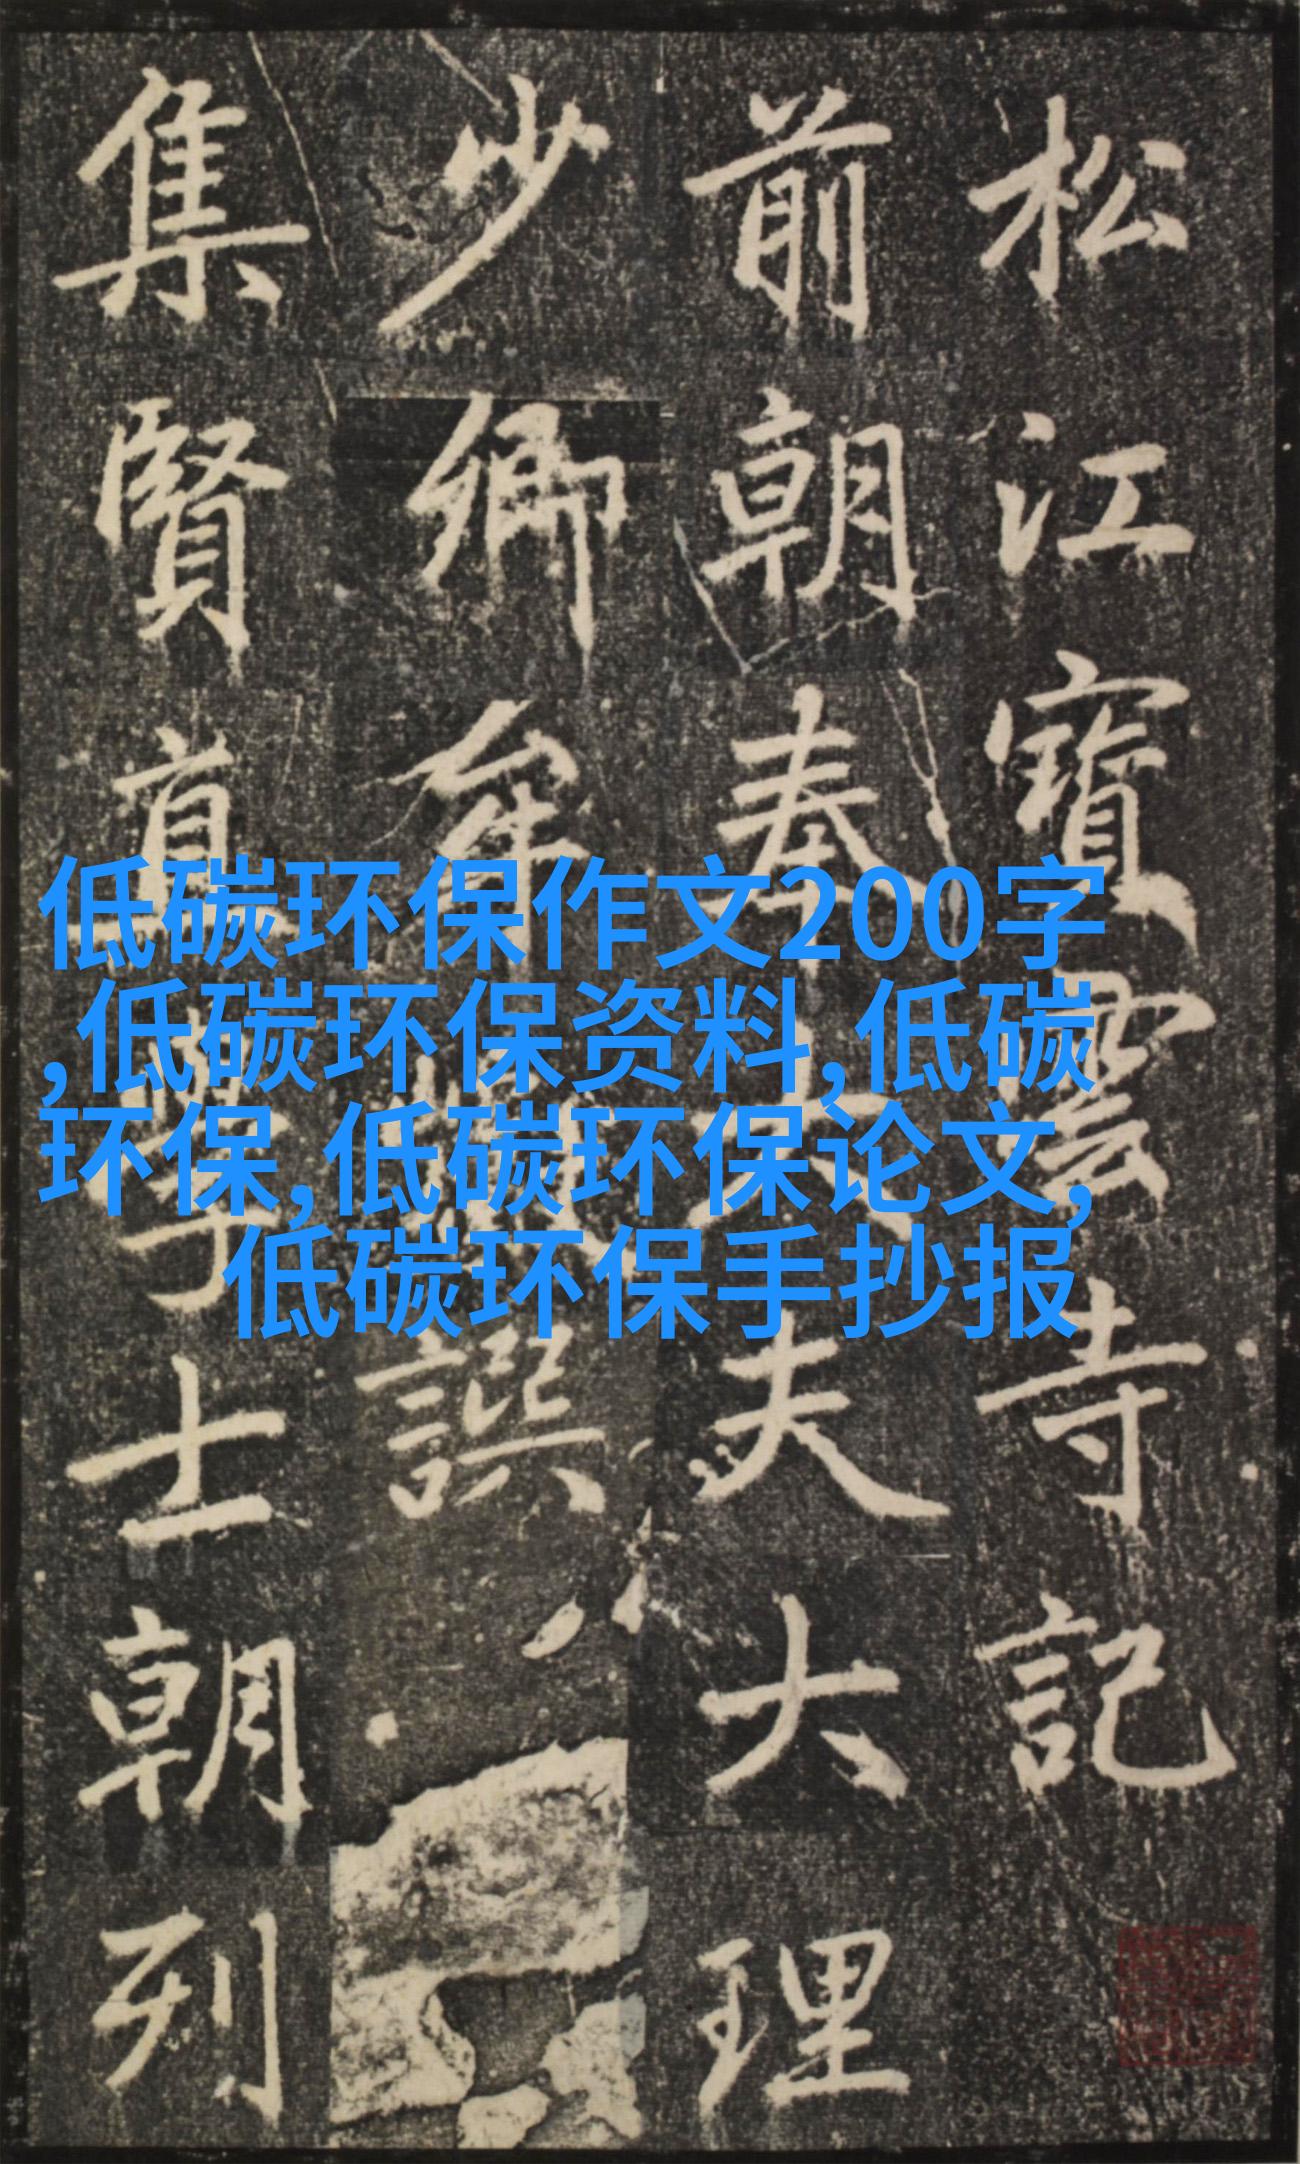 松江寶雲寺記
前朝奉大夫大理
少卿牟巘譔
集賢直學士朝列
低碳环保作文200字
,低碳环保资料,低碳
环保,低碳环保论文,
低碳环保手抄报